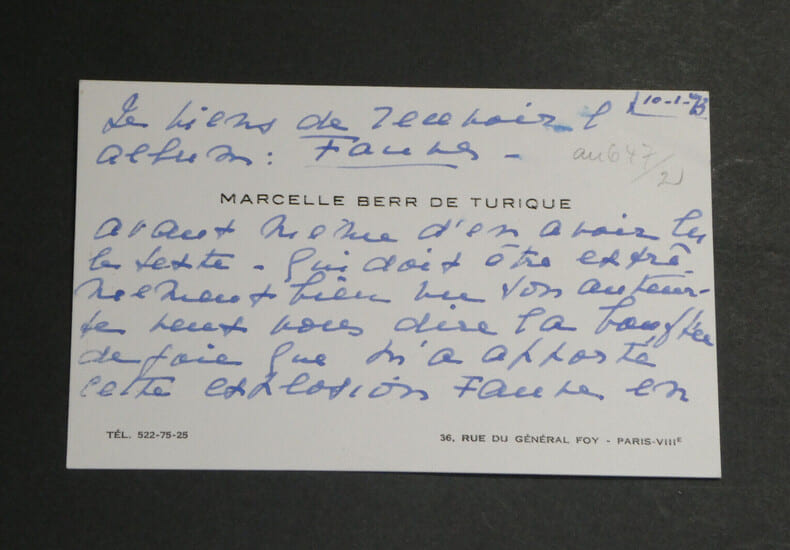 10-1-73
Je viens de recevoir l'
album: Fauves -
au647/2
MARCELLE BERR DE TURIQUE
avant même d'en avoir lu
le texte - qui doit être extrê
mement bien vu son auteur -
je veux vous dire la bouffée
de joie que m'a apporté
cette explosion Fauves en
TÉL. 522-75-25
36, RUE DU GÉNÉRAL FOY - PARIS-VIIIE